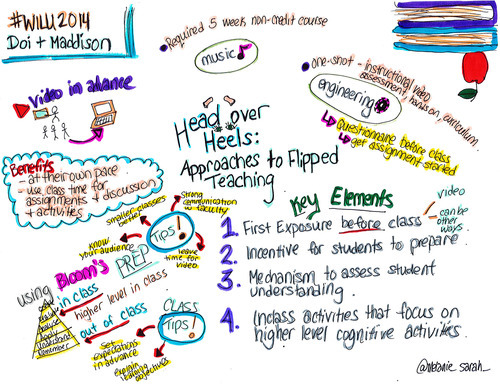 #WILU2014
Doi + Maddison
• Required 5 week non-credit course
music
• one-shot - instructional video
assessment, hands on, curriculum.
engineering
↳ Questionnaire before class
↳ get assignment started
video in advance
Head over
Heels:
Approaches to Flipped
Teaching
Benefits
- at their own pace
- use class time for
assignments + discussion
+ activities
PREP
Tips!
strong
communication
w faculty
smaller classes
better
know
your audience
leave
time for
video.
using Bloom's
in class
higher level in class
out of class
apply
understand
remember
CLASS
Tips!
set
expectations
in advance
explain
learning
objectives
Key Elements
1. First Exposure before class
video
- can be
other
ways
2. Incentive for students to prepare.
3. Mechanism to assess student
understanding.
4. Inclass activities that focus on
higher level cognitive activities.
@melanie_sarah_